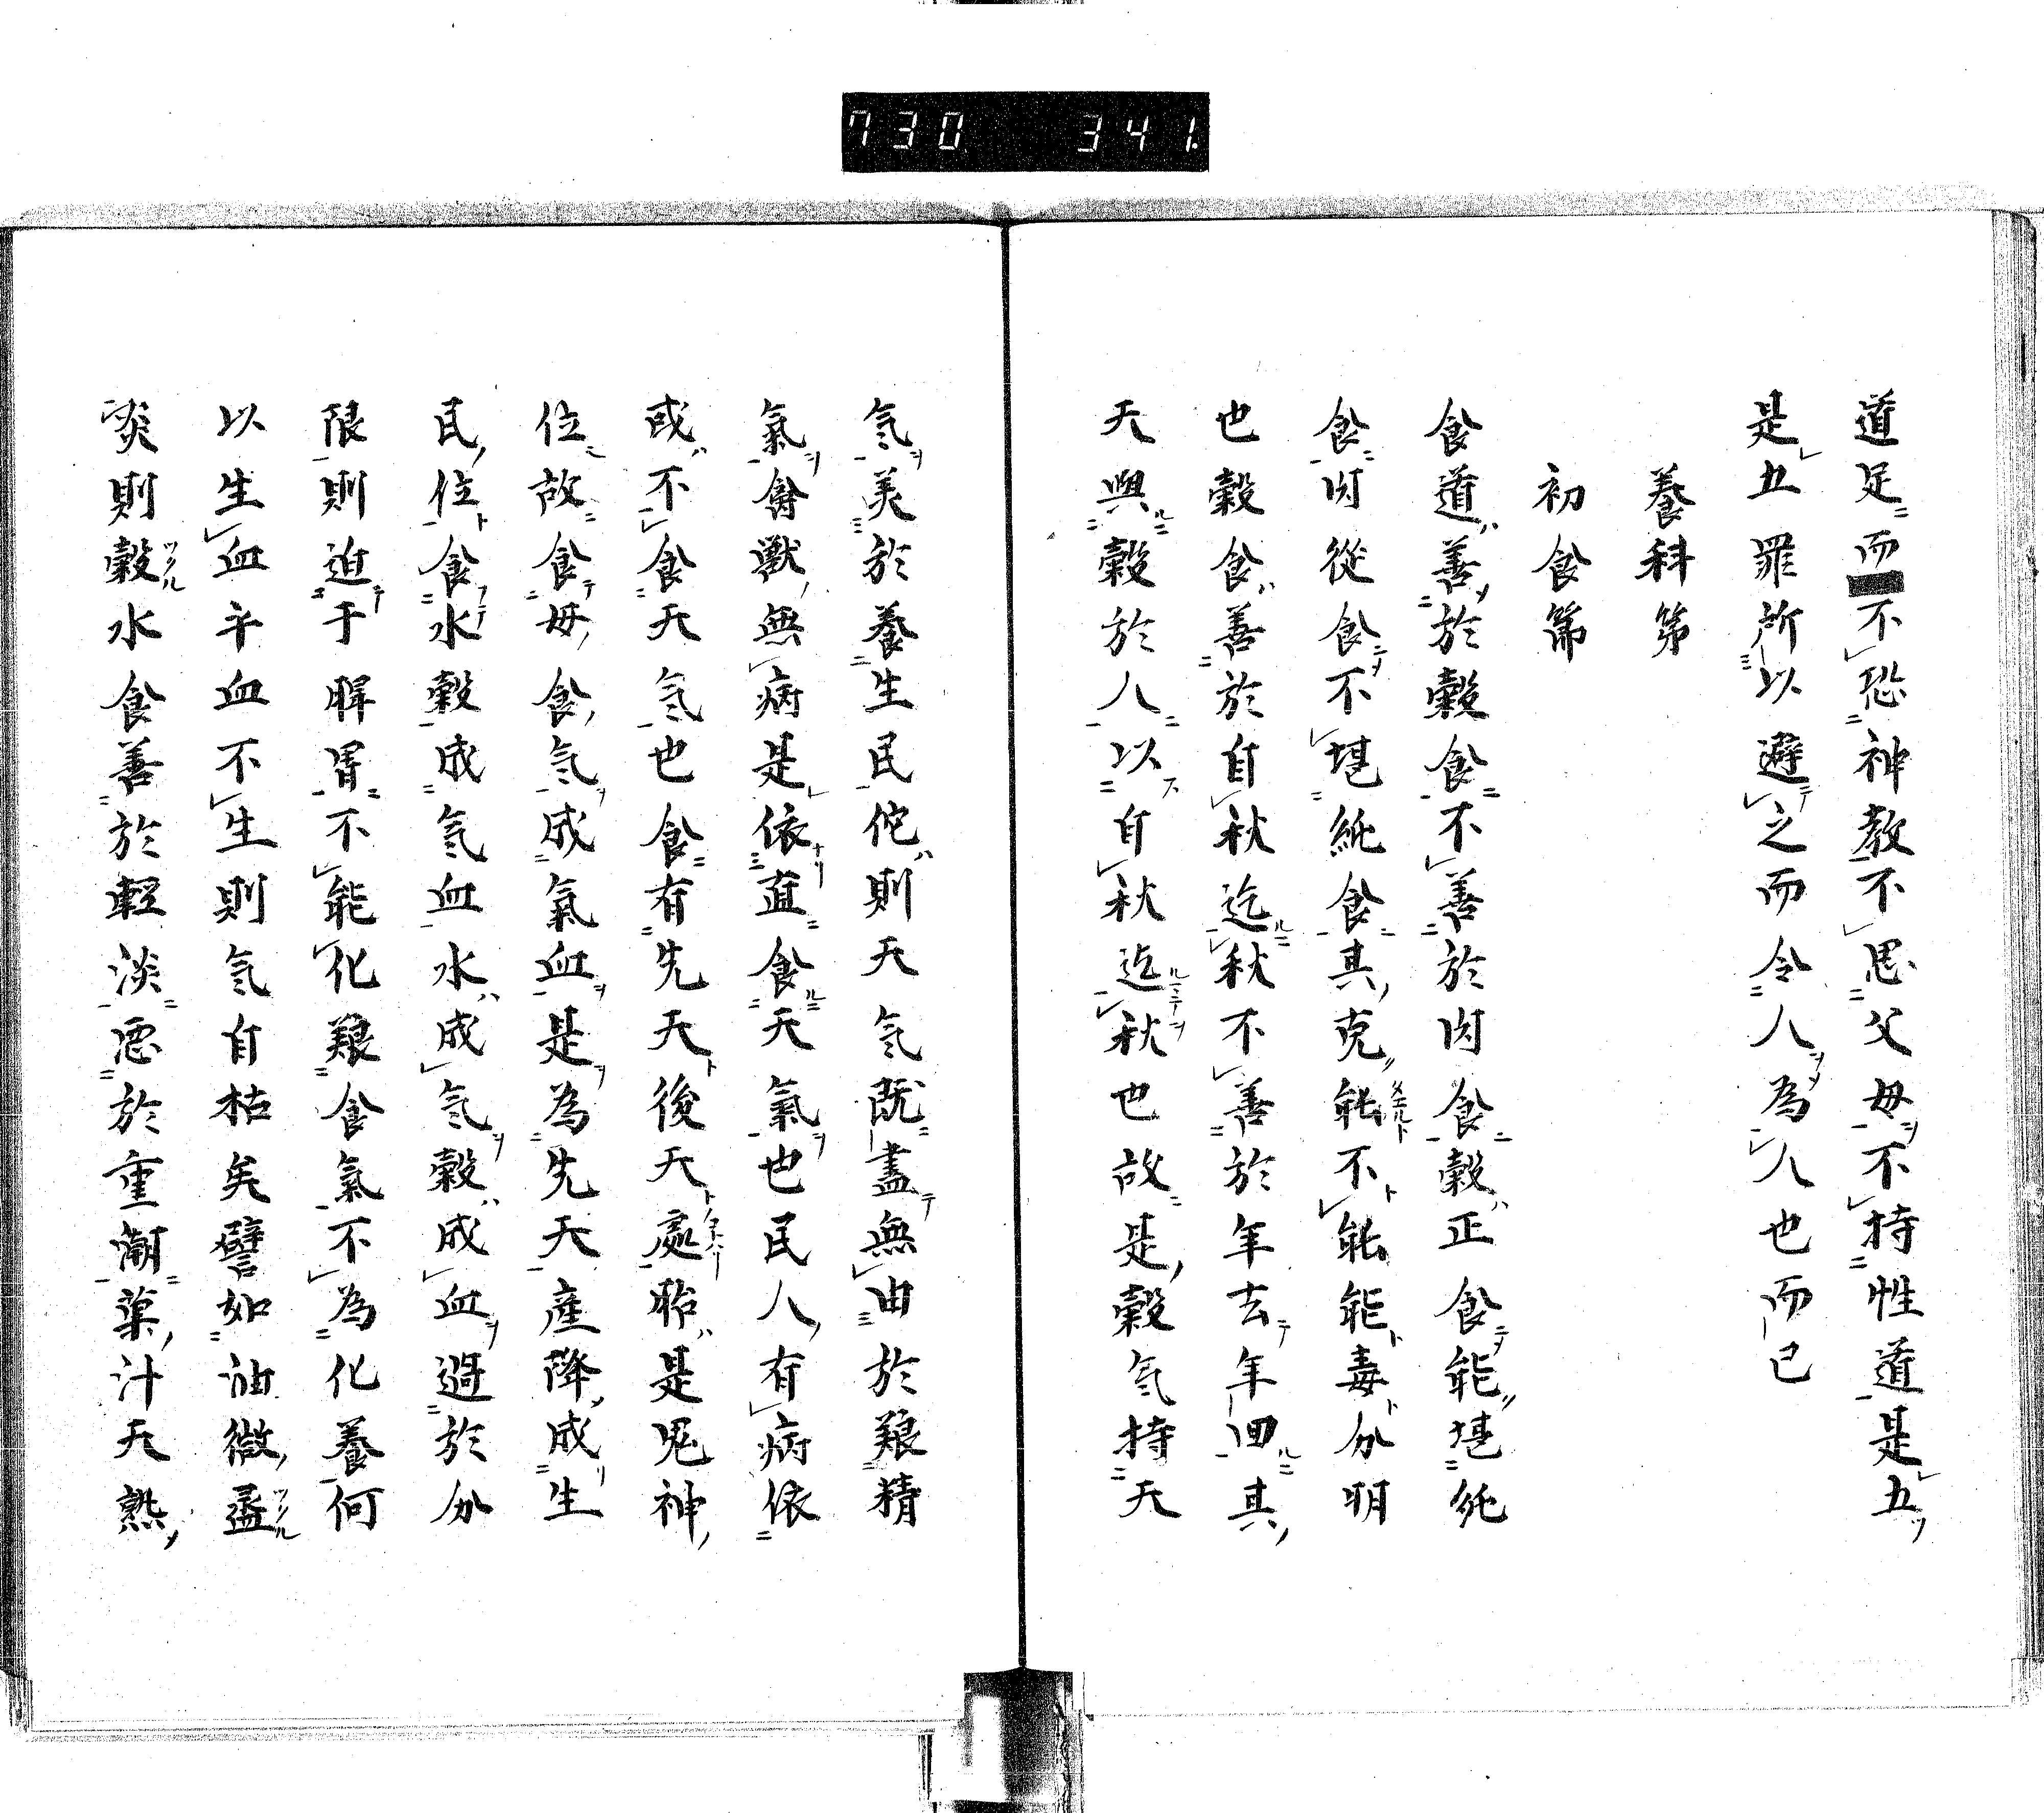 730 341
道足而不恐神教不思父母不持性道是五
是五罪所以避之而令人為人也而已
養科第
初食篇
食道善於穀食不善於肉食穀正食能堪純
食肉從食不堪純食其克能不能能毒分明
也穀食善於自秋迄秋不善於年去年回其
天與穀於人以自秋迄秋也故是穀気持天
気美於養生民佗則天気既盡無由於艱精
氣禽獣無病是依直食天氣也民人有病依
或不食天気也食有先天後天處胎是鬼神
位故食母食気成氣血是為先天産降成生
民位食水穀成気血水成気穀成血過於分
限則迫于脾胃不能化艱食氣不為化養何
以生血乎血不生則気自枯矣譬如油微盁
炎則穀水食善於軽淡悪於重潮菓汁天熟